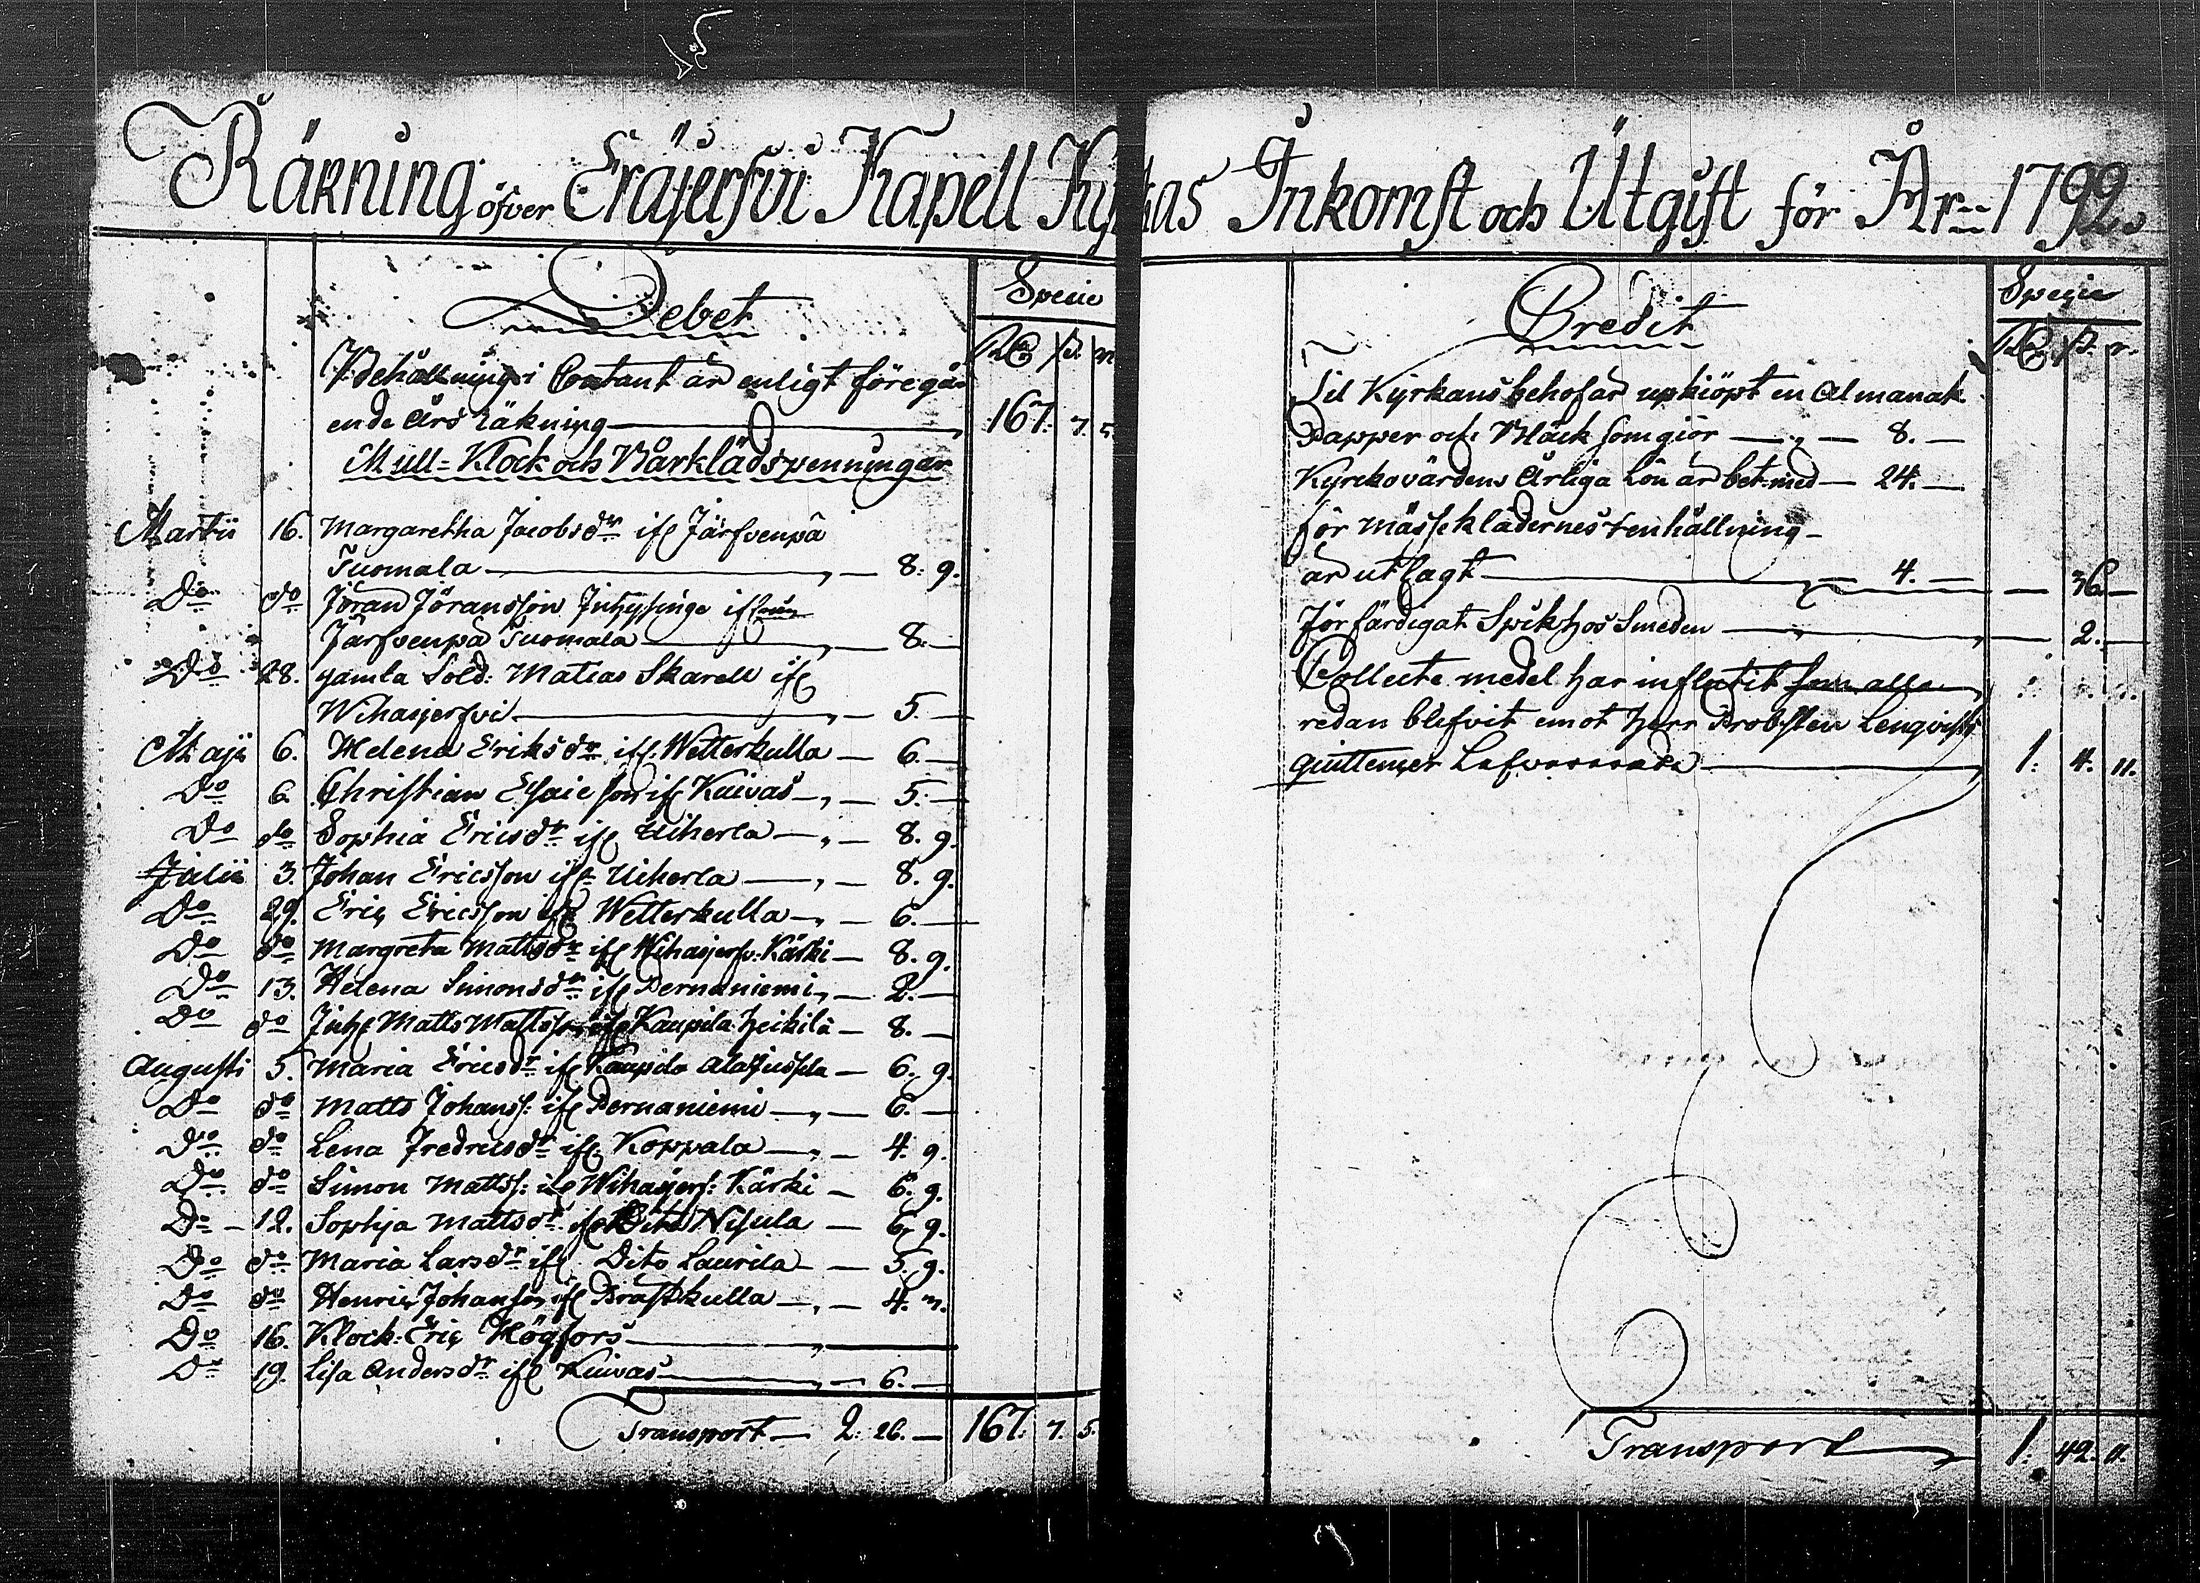 Räkning öfver Eräjerfvi Kapell Kyrkas Inkomst och Utgift för År 1792.
Debet
Specie
Rd ß. r
Behållning i Contant är enligt föregå-
ende Års Räkning — 167. 7. 5.
Mull= Klock och Bårklädspenningar
Martii 16. Margaretha Jacobsdr ifr Järfvenpä
Tuomala — 8. 9.
Do do Jöran Jöransson Inhysinge ifrån
Järfvenpä Tuomala — 8. —
Do 28. gamla Sold: Matias Skarell ifr
Wihasjerfvi — 5. —
Maji 6. Helena Eriksdr ifr Wetterkulla — 6. —
Do 6. Christian Esaie son ifr Kuivas — 5. —
Do do Sophia Ericsdr ifr Uiherla — 8. 9.
Julii 3. Johan Ericsson ifr Uiherla — 8. 9.
Do 29. Eric Ericsson ifr Wetterkulla — 6. —
Do do Margreta Mattsdr ifr Wihasjerfv: Kärki — 8. 9.
Do 13. Helena Simonsdr ifr Pernaniemi — 2. —
Do do Inh: Matts Mattsson ifr Kaupila Heikilä — 8. —
Augusti 5. Maria Ericsdr ifr Kaupila Alajussila — 6. 9.
Do do Matts Johanss: ifr Pernaniemi — 6. —
Do do Lena Fredricsdr ifr Koppala — 4. 9.
Do do Simon Mattss: ifr Wihasjerf: Kärki — 6. 9.
Do — 12. Sophja Mattsdr ifr Dito Nisula — 6. 9.
Do do Maria Larsdr ifr Dito Laurila — 5. 9.
Do do Henric Johansson ifr Prästkulla — 4. —
Do 16. Klock: Eric Högfors —
Do 19. Lisa Andersdr ifr Kuivas — 6. —
Transport — 2. 26. — 167. 7. 5.
Credit
Specie
Rd ß. r.
Til Kyrkans behofar upkiöpt en Almanak
Papper och Bläck som giör — 8. —
Kyrckovärdens Årliga Lön är bet: med — 24. —
för mässeklädernes renhållning —
är utlagt — 4. — — 36. —
förfärdigat Spik hos Smeden — 2. —
Collecte medel har influtit som alle-
redan blefvit emot Herr Probsten Lenqvists
quittenser Lefvererade — 1. 4. 11.
Transport — 1. 42. 11.